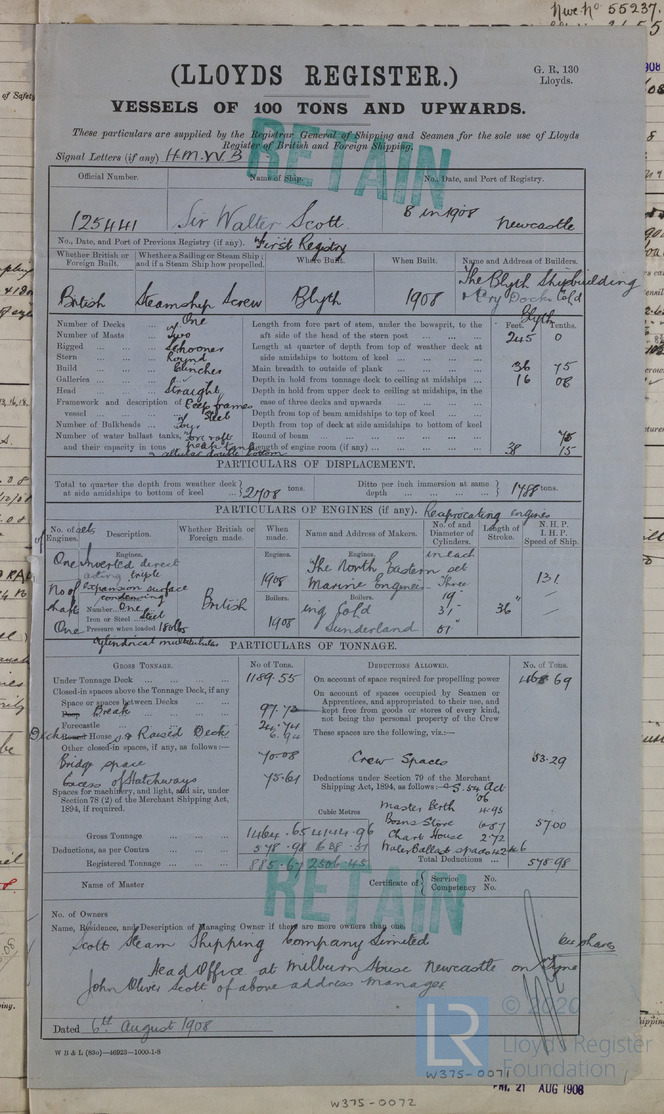 Nwe. No 55237.
(LLOYDS REGISTER.)
G. R. 130
Lloyds.
VESSELS OF 100 TONS AND UPWARDS.
These particulars are supplied by the Registrar General of Shipping and Seamen for the sole use of Lloyds
Register of British and Foreign Shipping.
RETAIN
Signal Letters (if any) H.M.W.B
Official Number. Name of Ship. No., Date, and Port of Registry.
125441 Sir Walter Scott. 8 in 1908 Newcastle
No., Date, and Port of Previous Registry (if any). First Registry
Whether British or Foreign Built. Whether a Sailing or Steam Ship; and if a Steam Ship how propelled. Where Built. When Built. Name and Address of Builders.
British Steamship Screw Blyth 1908 The Blyth Shipbuilding & Dry Docks Co Ld Blyth
Number of Decks ... One
Number of Masts ... Two
Rigged ... Schooner
Stern ... Round
Build ... Clincher
Galleries ...
Head ... Straight
Framework and description of vessel ... Steel
Number of Bulkheads ... Four
Number of water ballast tanks, and their capacity in tons
cellular double bottom
Feet. Tenths.
Length from fore part of stem, under the bowsprit, to the aft side of the head of the stern post ... 245 0
Length at quarter of depth from top of weather deck at side amidships to bottom of keel ...
Main breadth to outside of plank ... 36 75
Depth in hold from tonnage deck to ceiling at midships ... 16 08
Depth in hold from upper deck to ceiling at midships, in the case of three decks and upwards ...
Depth from top of beam amidships to top of keel
Depth from top of deck at side amidships to bottom of keel
Round of beam ... 75
Length of engine room (if any) ... 38 15
PARTICULARS OF DISPLACEMENT.
Total to quarter the depth from weather deck at side amidships to bottom of keel ... 2708 tons.
Ditto per inch immersion at same depth ... tons.
PARTICULARS OF ENGINES (if any). Reciprocating engines
No. of sets of Engines. Description. Whether British or Foreign made. When made. Name and Address of Makers. No. of and Diameter of Cylinders. Length of Stroke. N. H. P. I. H. P. Speed of Ship.
Engines. Engines. Engines. in each set
One Inverted direct acting triple expansion surface condensing 1908 The North Eastern Marine Engineering Co Ld Sunderland Three 131
No of shafts One
British
19" 31" 51" 36"
Boilers. Boilers.
Number One
Iron or Steel Steel
Pressure when loaded 180 lbs
1908
Cylindrical multitubular
PARTICULARS OF TONNAGE.
GROSS TONNAGE. No of Tons.
Under Tonnage Deck ... 1189.55
Closed-in spaces above the Tonnage Deck, if any
Space or spaces between Decks
Poop Break ... 97.73
Forecastle ... 24.74
Round House Deck & Raised Deck 6.94
Other closed-in spaces, if any, as follows:—
Bridge space 70.08
Excess of Hatchways 75.61
Spaces for machinery, and light, and air, under Section 78 (2) of the Merchant Shipping Act, 1894, if required.
Cubic Metres
Gross Tonnage ... 1464.65 4144.96
Deductions, as per Contra ... 578.98
Registered Tonnage ... 885.67 2506.45
DEDUCTIONS ALLOWED. No. of Tons.
On account of space required for propelling power 468 69
On account of spaces occupied by Seamen or Apprentices, and appropriated to their use, and kept free from goods or stores of every kind, not being the personal property of the Crew
These spaces are the following, viz.:—
Crew Spaces 53.29
Deductions under Section 79 of the Merchant Shipping Act, 1894, as follows:— & S. 54 Act 06
Master Berth 4.95
Bosns Store 6.87
Chart House 2.72
Water Ballast spaces 42.46
57.00
Total Deductions ... 578.98
Name of Master
Certificate of { Service No. Competency No.
RETAIN
No. of Owners
Name, Residence, and Description of Managing Owner if there are more owners than one.
Scott Steam Shipping Company Limited
Head Office at Milburn House Newcastle on Tyne
John Oliver Scott of above address Manager
Dated 6th August 1908
W B & L (83o)—46923—1000-1-8
LR
© 2020
Lloyd's Register
Foundation
W375-0071
FRI. 21 AUG 1908
W375-0072